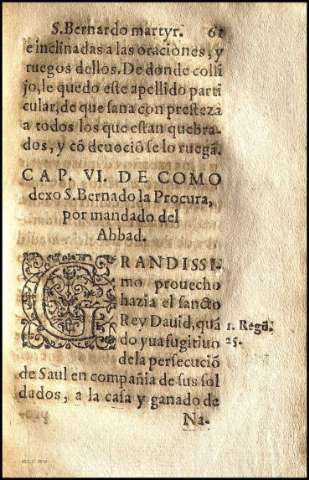 S. Bernardo martyr. 61
e inclinadas a las oraciones, y
ruegos dellos. De donde colli
jo, le quedo este apellido parti
cular, de que sana con presteza
a todos los que estan quebra-
dos, y cõ deuociõ se lo ruegã.
CAP. VI. DE COMO
dexo S. Bernado la Procura,
por mandado del
Abbad.
GRANDISSI-
mo prouecho
hazia el sancto
Rey Dauid, quã
do yua fugitiuo
de la persecuciõ
de Saul en compañia de sus sol
dados, a la casa y ganado de
Na-
1. Regũ.
25.